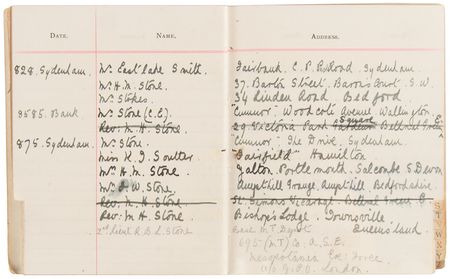 DATE. NAME. ADDRESS.
828. Sydenham. Mr. Eastlake Smith. Fairbank. C. P. Rd. Sydenham.
Mr. H. M. Stone. 37. Barton Street. Baron's Court. S. W.
Mrs. Stokes. 34 Linden Road. Bedford
3585. Bank Mr. Stone (C. E.) "Cumnor". Woodcote Avenue Wallington.
Rev. M. H. Stone. 29. Victoria Park Square
875. Sydenham. Mr. Stone. "Cumnor" The Drive. Sydenham.
Miss K. J. Soulter "Fairfield" Hamilton
Mr. H. M. Stone. Portlemouth. Salcombe S. Devon
Mr. W. Stone. Ampthill Grange. Ampthill Bedfordshire.
Rev. M. H. Stone. Vicarage. Bethnal Green E.
Rev: M. H. Stone. Bishop's Lodge. Townsville
2nd Lieut R. B. L. Stone Base M. T. Depot Queensland.
695 (M T) Co: A. S. C.
Mesopotamia Ex: Force
c/o G. P. O. London.
S
T
W
XYZ